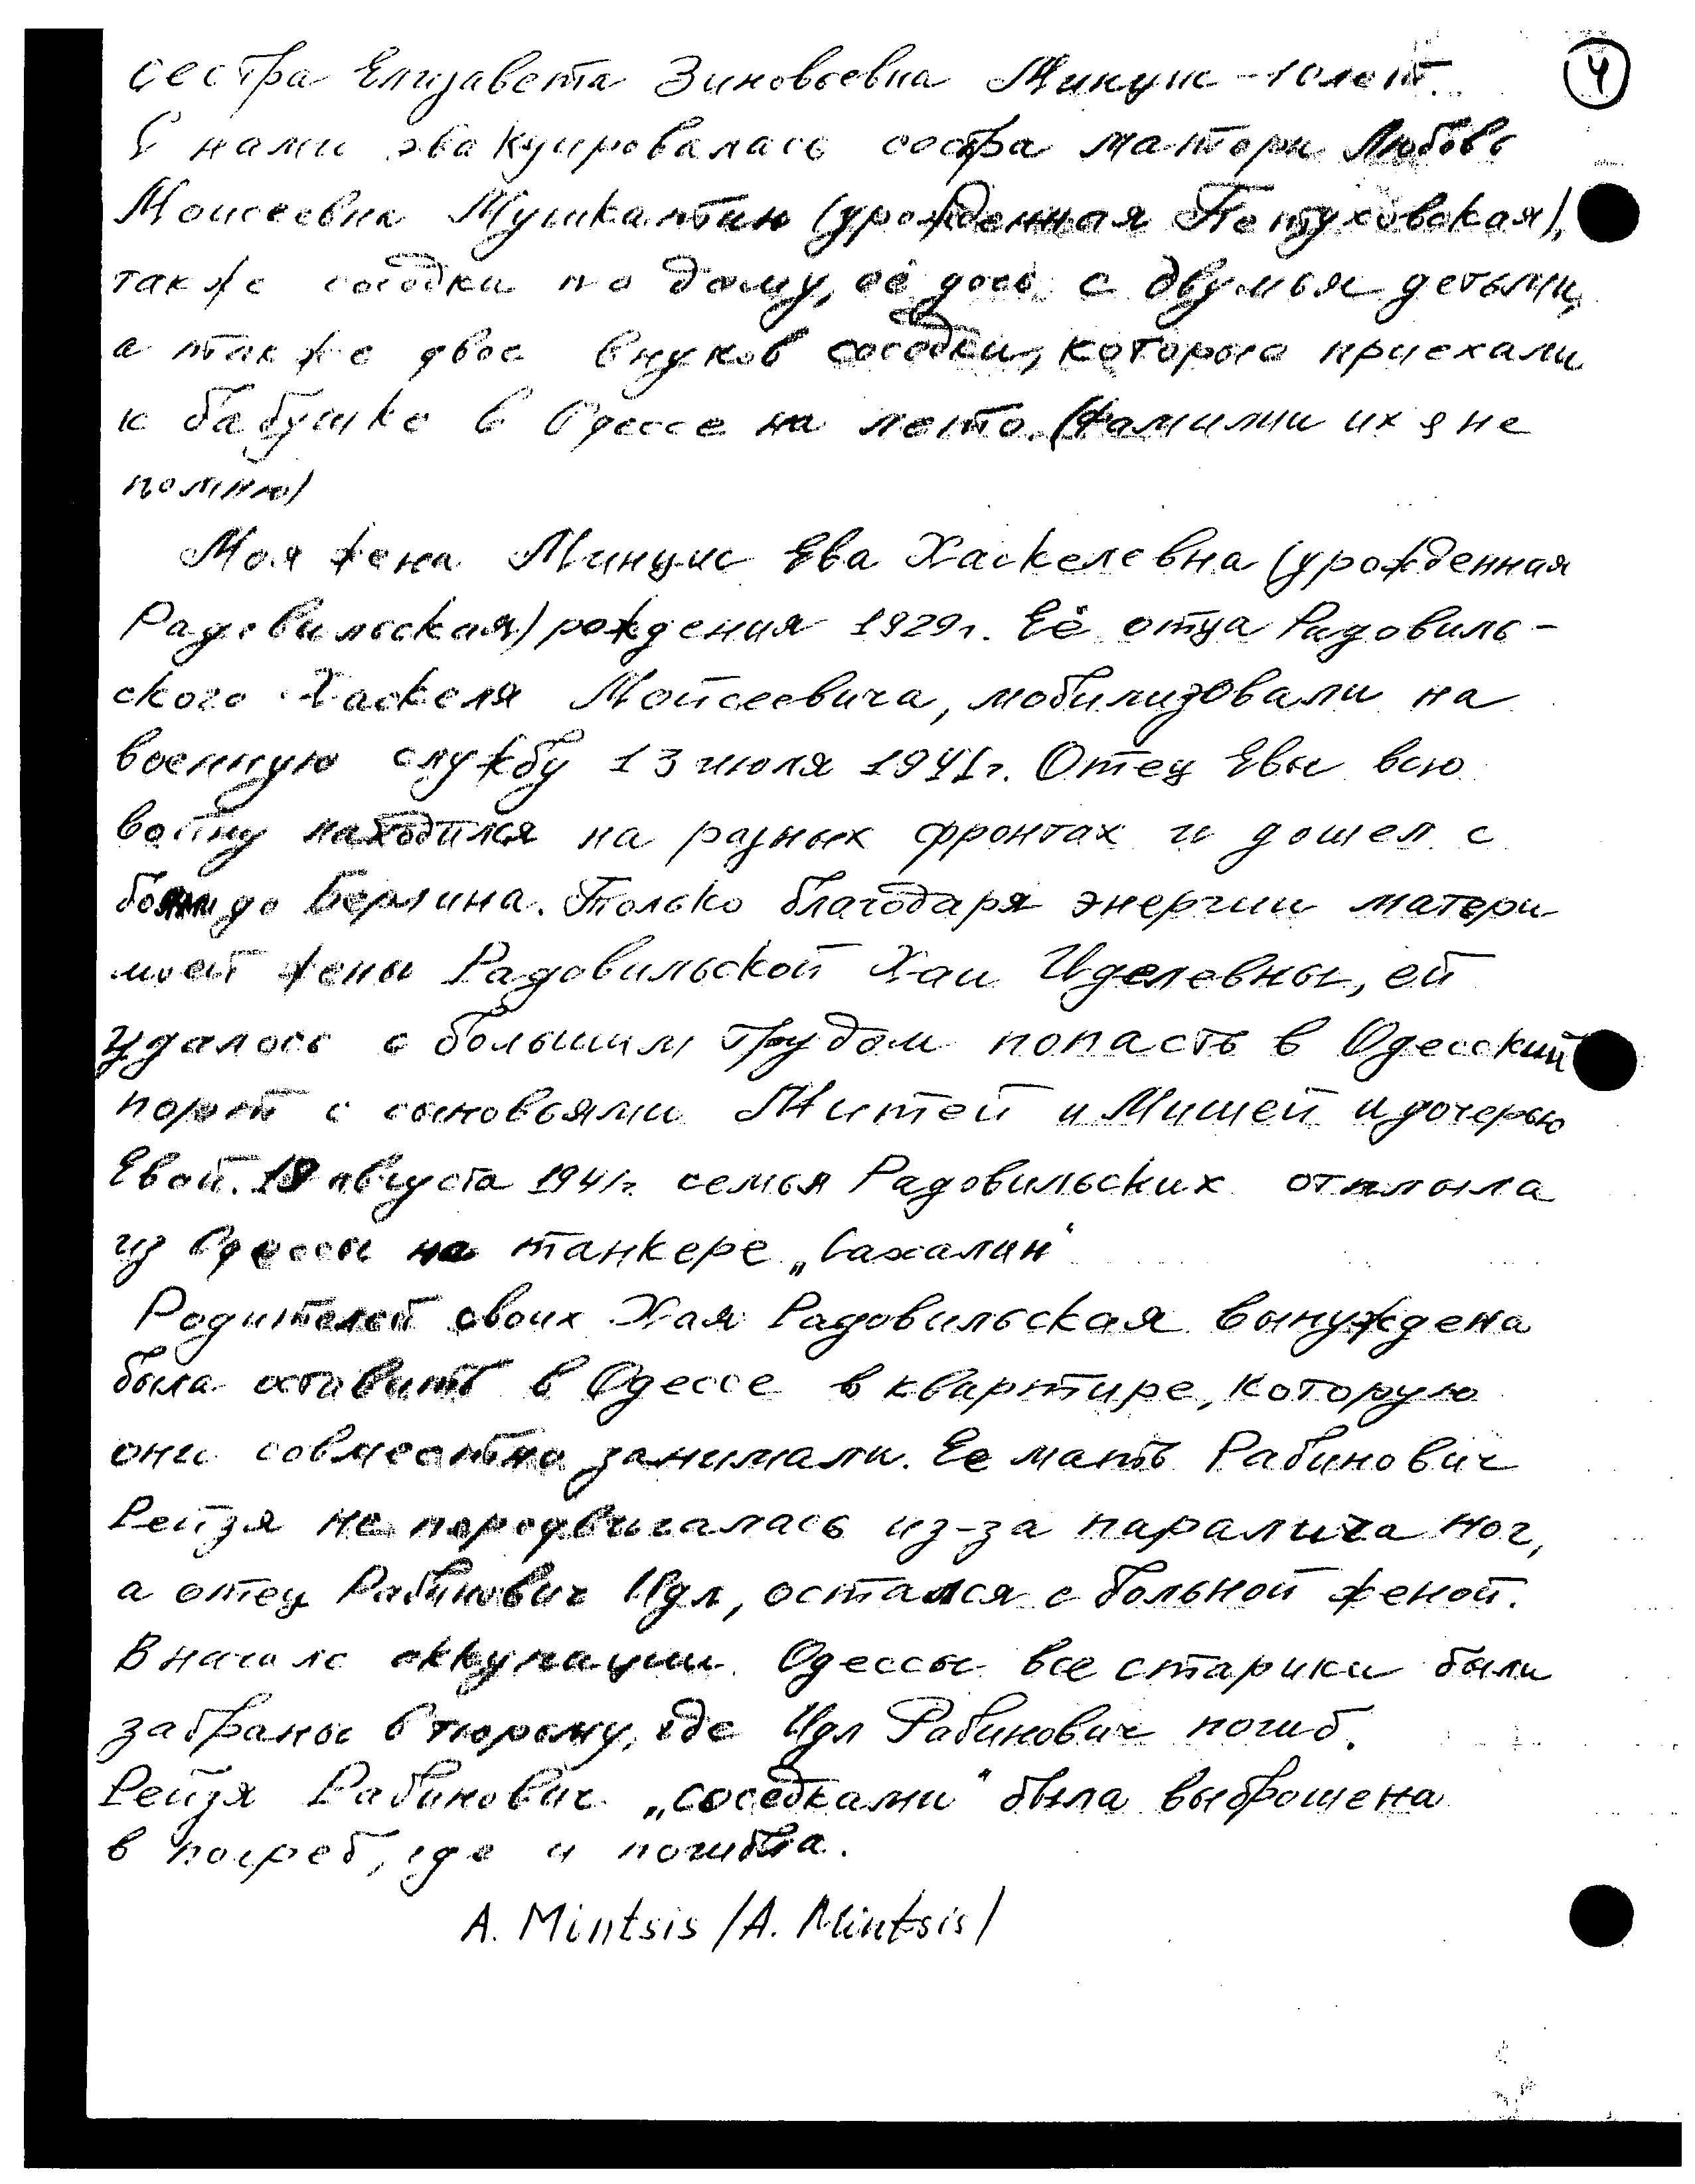 4
сестра Елизавета Зиновьевна Минцис – 10 лет.
С нами эвакуировалась сестра матери Любовь
Моисеевна Мушкатин (урожденная Петуховская),
также соседки по дому, её дочь с двумья детьми,
а также двое внуков соседки, которые приехали
к бабушке в Одессе на лето. (Фамилии их я не
помню)
Моя жена Минцис Ева Хаскелевна (урожденная
Радовильская) рождения 1929г. Её отца Радовиль-
ского Хаскеля Мойсеевича, мобилизовали на
военную службу 13 июля 1941г. Отец Евы всю
войну находился на разных фронтах и дошел с
боями до Берлина. Только благодаря энергии матери
моей жены Радовильской Хаи Иделевны, ей
удалось с большим трудом попасть в Одесский
порт с сыновьями Митей и Мишей и дочерью
Евой. августа 1941г. семья Радовильских отплыла
из Одессы на танкере „Сахалин“
Родителей своих Хая Радовильская вынуждена
была оставить в Одессе в квартире, которую
они совместно занимали. Ее мать Рабинович
Рейзя не передвигалась из-за паралича ног,
а отец Рабинович Идл, остался с больной женой.
В начале оккупации Одессы все старики были
забраны в тюрьму, где Идл Рабинович погиб.
Рейзя Рабинович „соседками“ была выброшена
в погреб, где и погибла.
A. Mintsis /A. Mintsis/